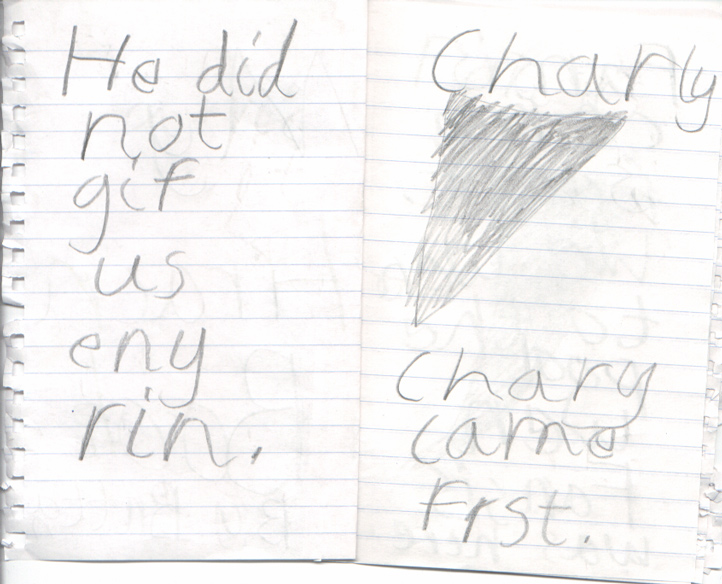 He did
not
gif
us
eny
rin.
Charly
Chary
came
Frst.